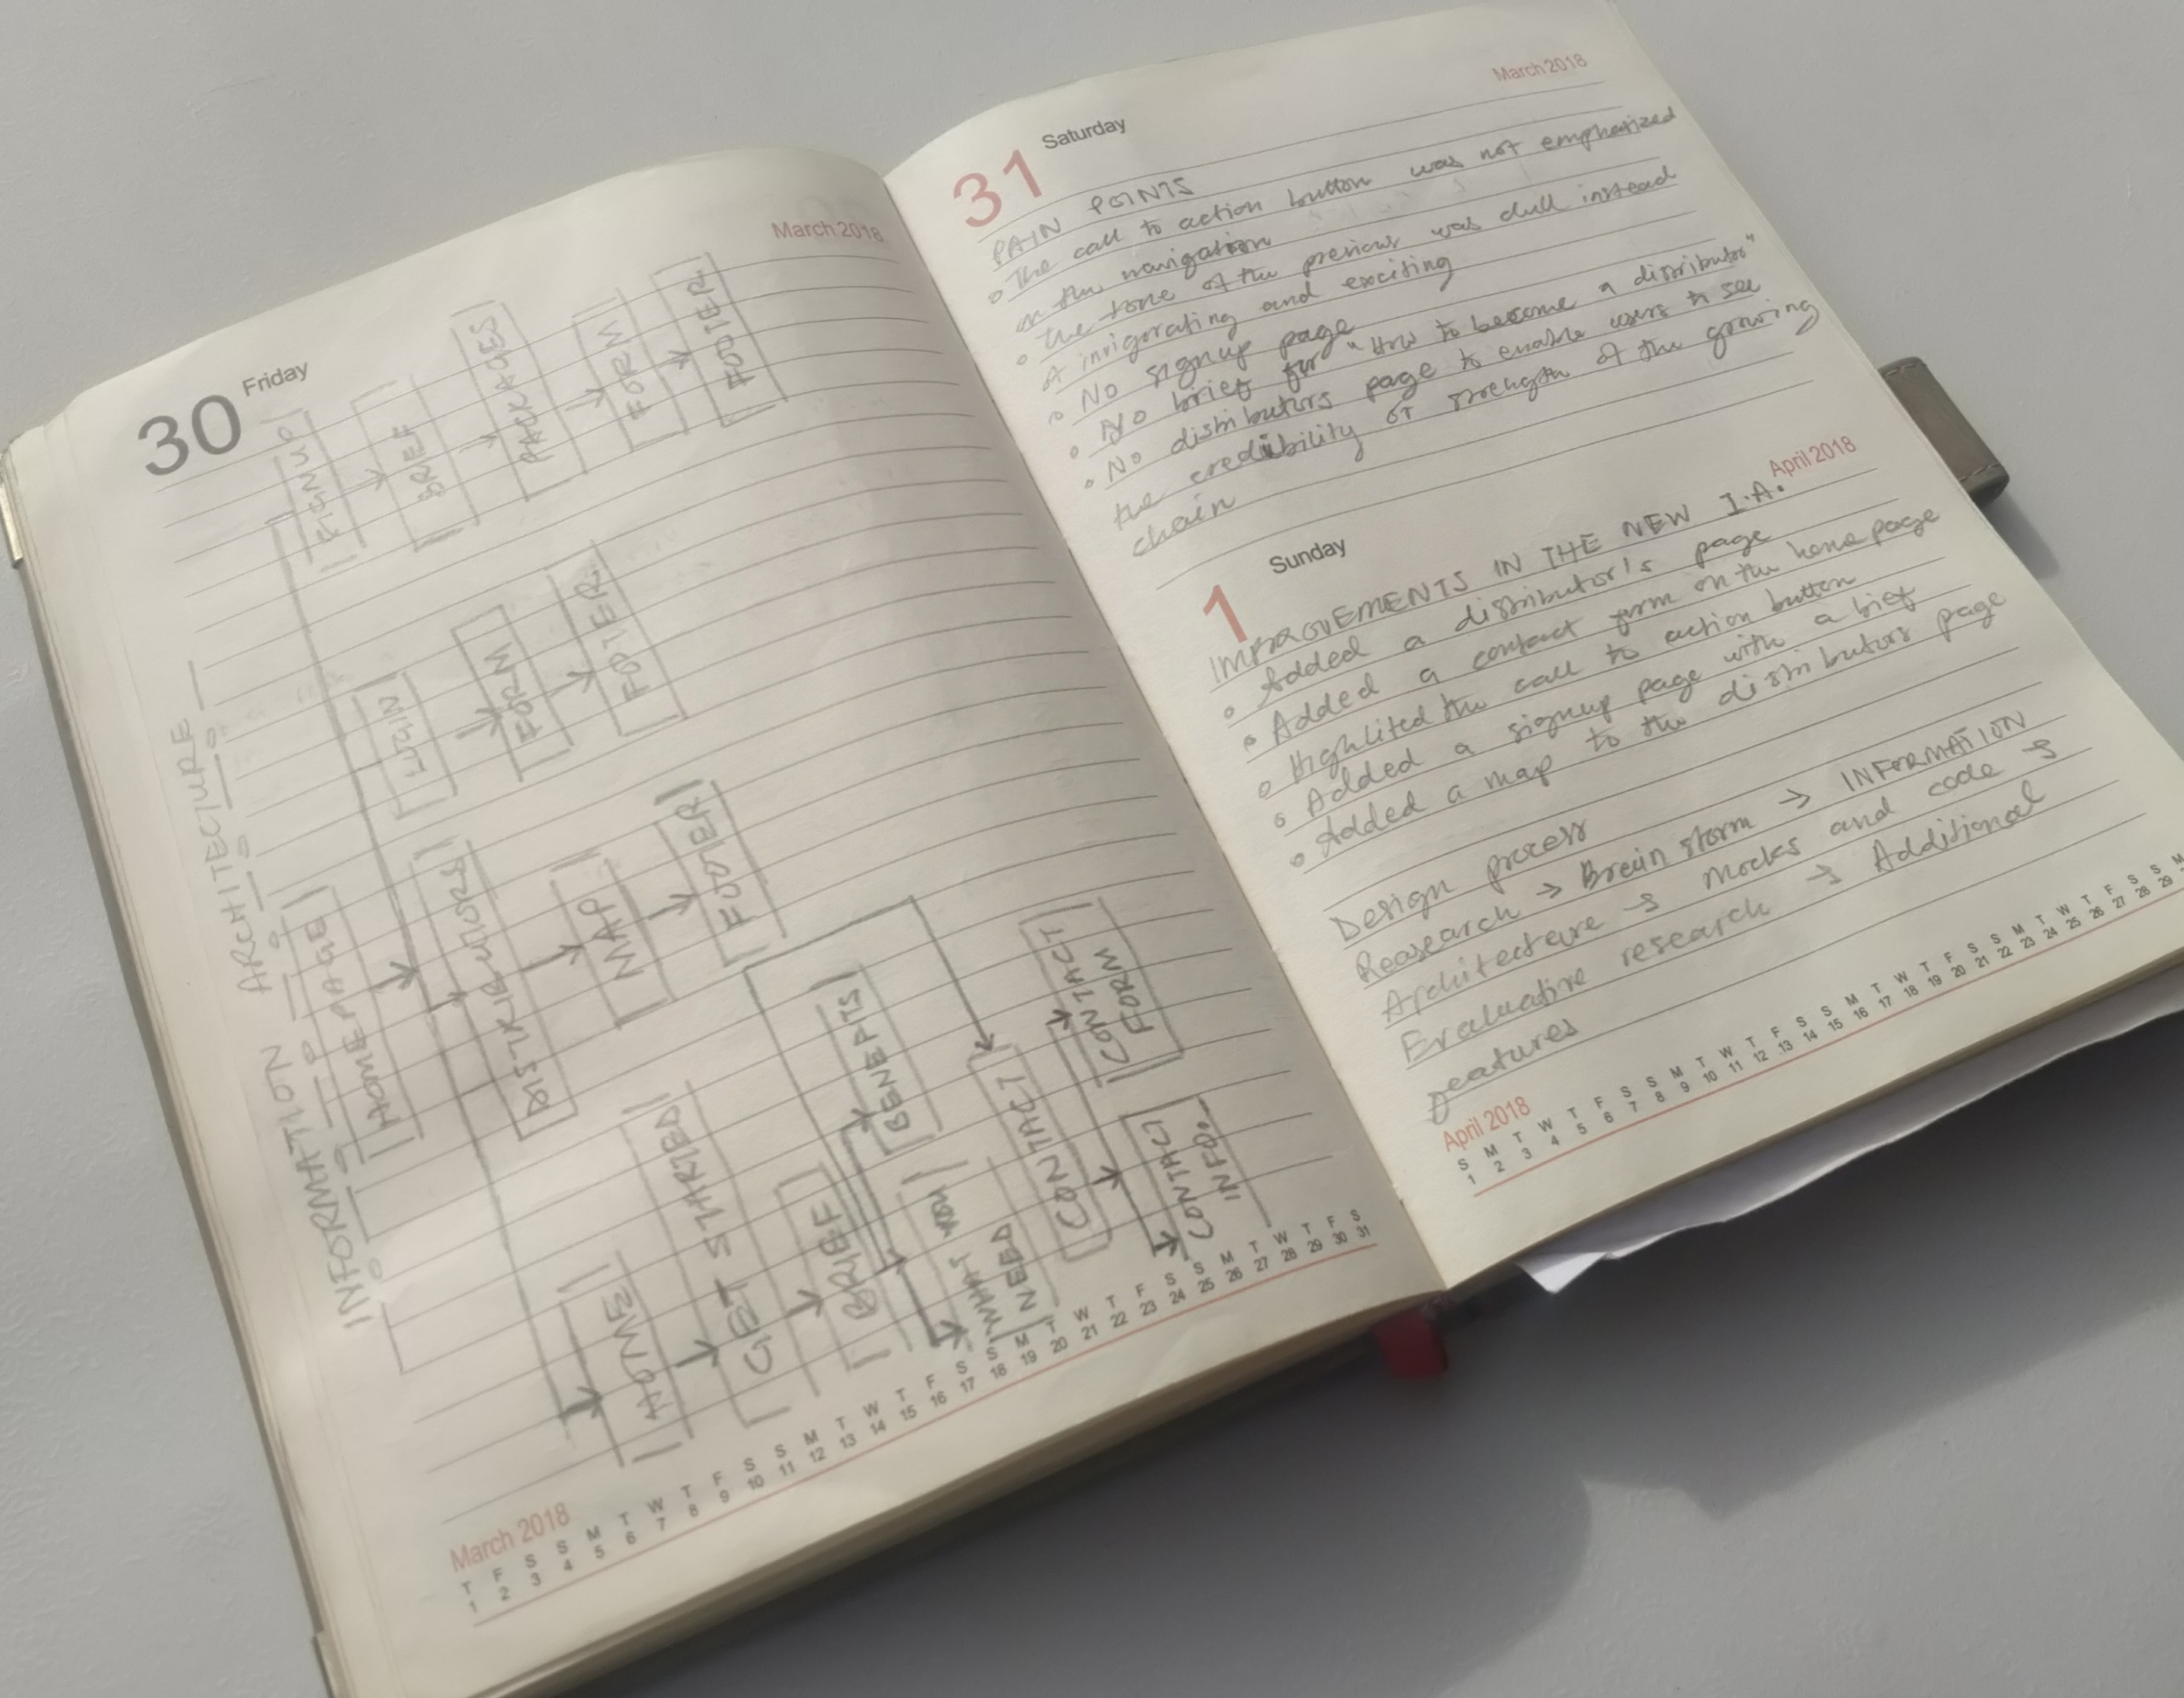 March 2018
30 Friday
INFORMATION ARCHITECTURE
HOMEPAGE
HOME
GET STARTED
BRIEF
BENEFITS
WHATS YOU
NEED
CONTACT
CONTACT
FORM
CONTACT
INFO.
DISTRIBUTORS
MAP
FOOTER
LOGIN
FORM
FOOTER
SIGNUP
BREF
PACKAGES
FORM
FOOTER
March 2018
T F S S M T W T F S S M T W T F S S M T W T F S S M T W T F S
1 2 3 4 5 6 7 8 9 10 11 12 13 14 15 16 17 18 19 20 21 22 23 24 25 26 27 28 29 30 31
March 2018
31 Saturday
PAIN POINTS
The call to action button was not emphasized
on the navigation
the tone of the previous was dull instead
of invigorating and exciting
No signup page
No brief for "How to become a distributor"
No distributors page to enable users to see
the credibility or strength of the growing
chain
April 2018
1 Sunday
IMPROVEMENTS IN THE NEW I.A.
Added a distributor's page
Added a contact form on the home page
Highlited the call to action button
Added a signup page with a brief
Added a map to the distributors page
Design process
Research → Brain storm → INFORMATION
Architecture → Mocks and code →
Evaluative research → Additional
features
April 2018
S M T W T F S S M T W T F S S M T W T F S S M T W T F S S
1 2 3 4 5 6 7 8 9 10 11 12 13 14 15 16 17 18 19 20 21 22 23 24 25 26 27 28 29